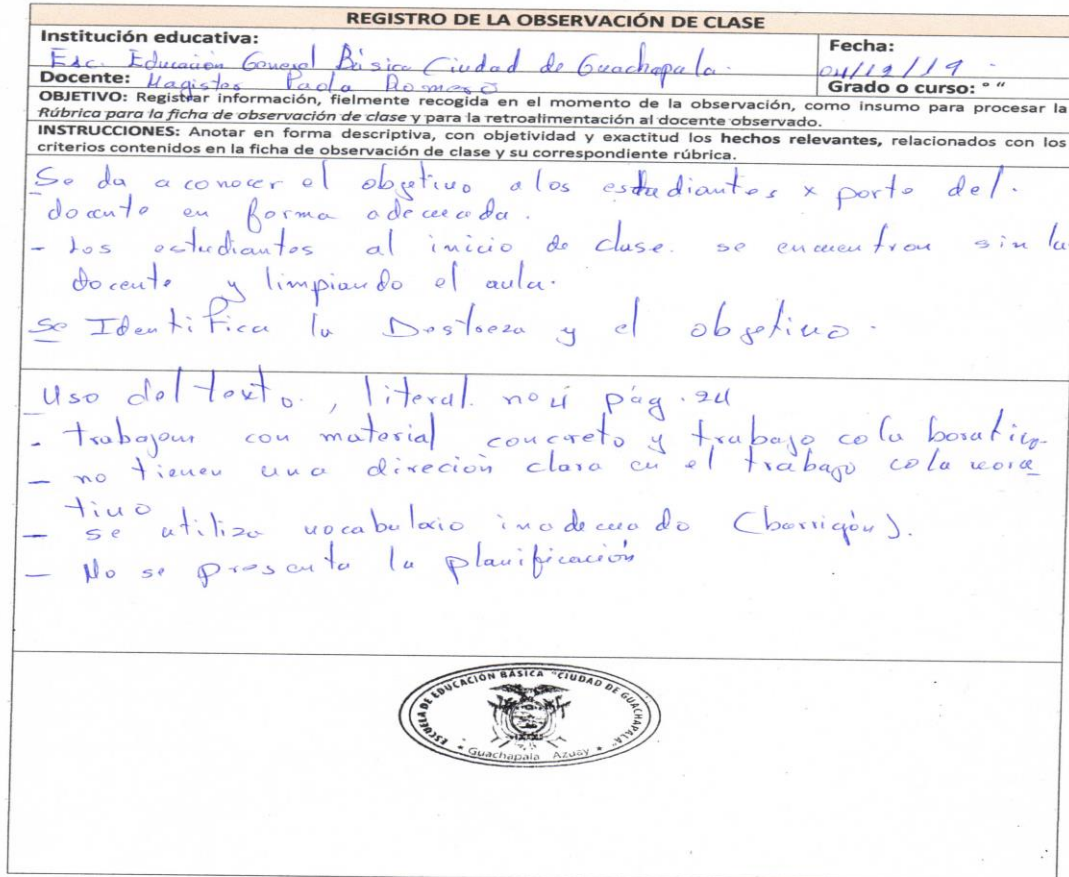 REGISTRO DE LA OBSERVACIÓN DE CLASE
Institución educativa:
Esc. Educación General Básica Ciudad de Guachapala.
Fecha:
04/12/19
Docente: Magister Paola Romero
Grado o curso: ° "
OBJETIVO: Registrar información, fielmente recogida en el momento de la observación, como insumo para procesar la
Rúbrica para la ficha de observación de clase y para la retroalimentación al docente observado.
INSTRUCCIONES: Anotar en forma descriptiva, con objetividad y exactitud los hechos relevantes, relacionados con los
criterios contenidos en la ficha de observación de clase y su correspondiente rúbrica.
Se da a conocer el objetivo a los estudiantes x parte del.
- docente en forma adecuada.
- Los estudiantes al inicio de clase. se encuentran sin la
docente y limpiando el aula.
Se Identifica la Destreza y el objetivo.
Uso del texto., literal pág. 24
- trabajan con material concreto y trabajo colaborativo
- no tienen una direción clara en el trabajo colavora
tivo
- se utiliza vocabulario inadecuado (barrigón).
- No se presenta la planificación
ESCUELA DE EDUCACIÓN BÁSICA "CIUDAD DE GUACHAPALA"
* Guachapala Azuay *